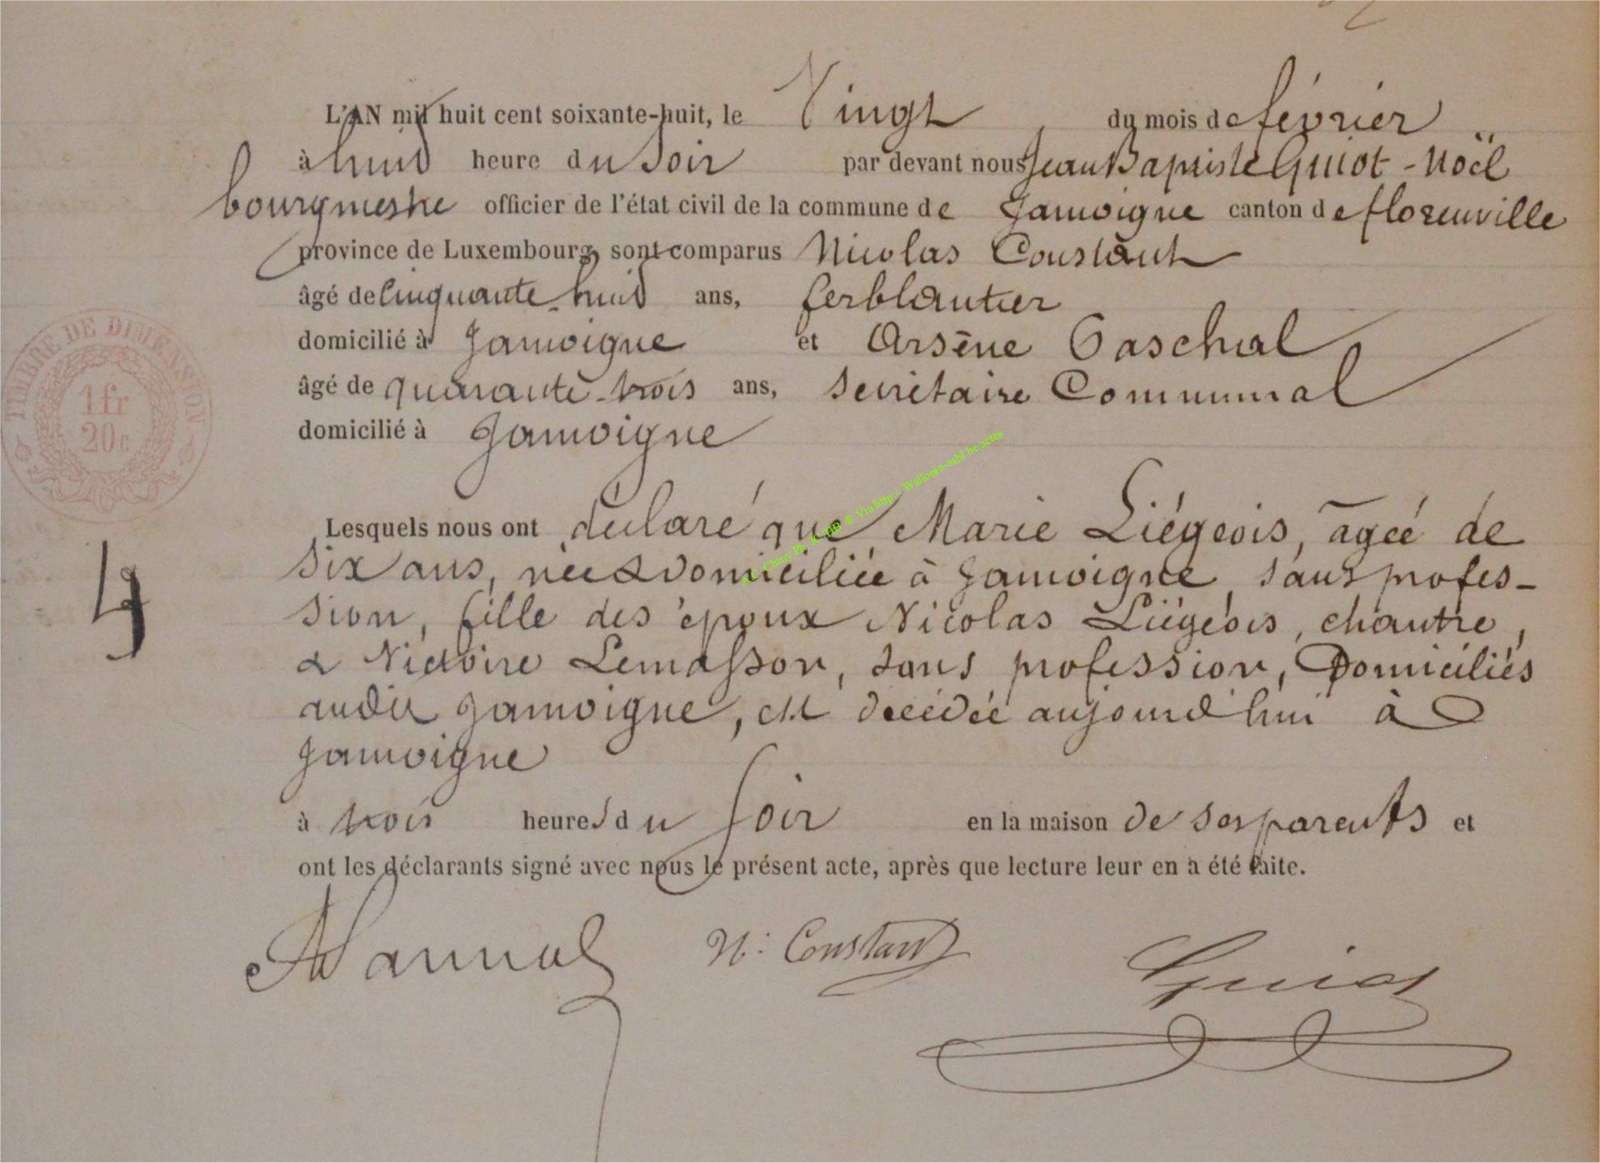 L'AN mil huit cent soixante-huit, le Vingt du mois de février
à huit heure du Soir par devant nous Jean Baptiste Guiot-Noël
bourgmestre officier de l'état civil de la commune de Jamoigne canton de florenville
province de Luxembourg, sont comparus Nicolas Constant
âgé de Cinquante-huit ans, ferblantier
domicilié à Jamoigne et Arsène Paschal
âgé de quarante-trois ans, Secrétaire Communal
domicilié à Jamoigne
TIMBRE DE DIMENSION
1 fr
20 c
Lesquels nous ont déclaré que Marie Liégeois, agée de
six ans, née & domiciliée à Jamoigne, sans profes-
sion, fille des époux Nicolas Liégeois, chantre,
4
& Victoire Lemasson, sans profession, Domiciliés
audit Jamoigne, est décédée aujourd'hui à
Jamoigne
à trois heures du Soir en la maison de ses parents et
ont les déclarants signé avec nous le présent acte, après que lecture leur en a été faite.
N. Constant
Guiot